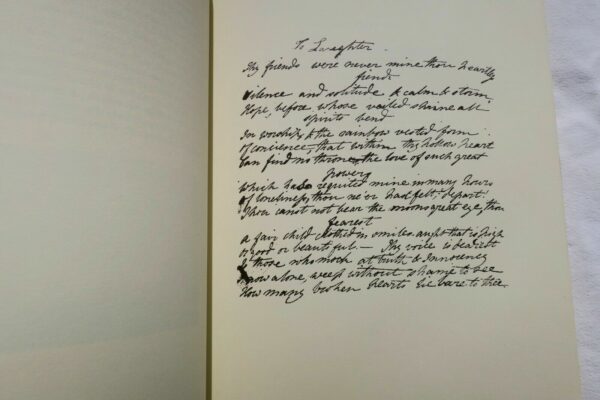 To Laughter.
Thy friends were never mine thou heartless
fiend:
Silence and solitude & calm & storm,
Hope, before whose veiled shrine all
spirits bend
In worship, & the rainbow vested form
Of conscience, that within thy hollow heart
Can find no throne, the love of such great
powers
Which has requited mine in many hours
Of loneliness, thou ne'er hast felt; depart!
Thou canst not bear the moons great eye, thou
fearest
a fair child clothed in smiles. aught that is high
or good or beautiful. — Thy voice is dearest
To those who mock at truth & Innocency
now alone, weep without shame to see
How many broken hearts lie bare to thee.